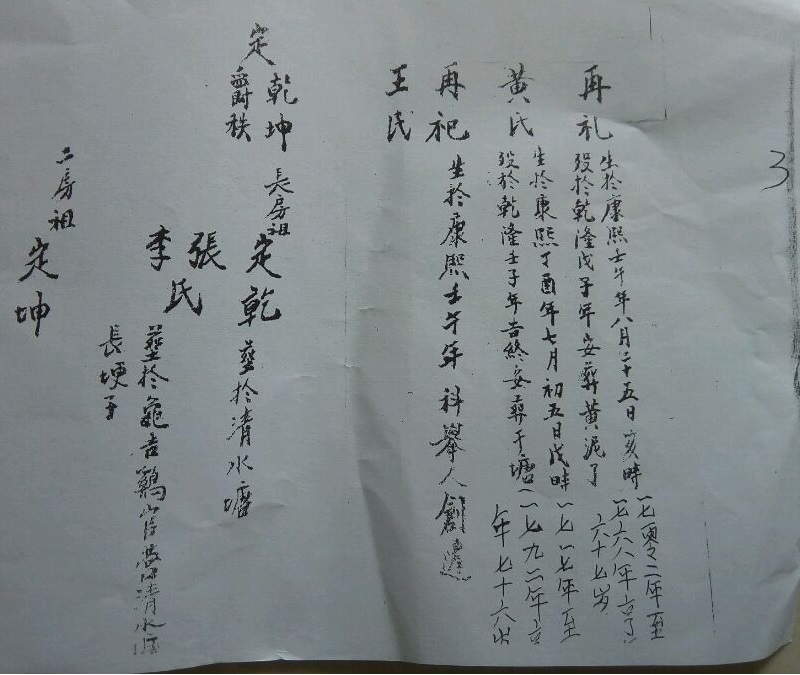 3
再礼
生於康熙壬午年八月二十五日亥時
一七零二年至
殁於乾隆戊子年安葬黄泥了
一七六八年
六十七岁
黄氏
生於康熙丁酉年七月初五日戌時
一七一七年至
殁於乾隆壬子年告終安葬于塘
一七九二年
年七十六岁
再祀
生於康熙壬午年科舉人
王氏
定
乾坤
爵秩
長房祖
定乾
葬於清水塘
張李氏
葬於龜古鷄 清水塘
長埂子
二房祖
定坤